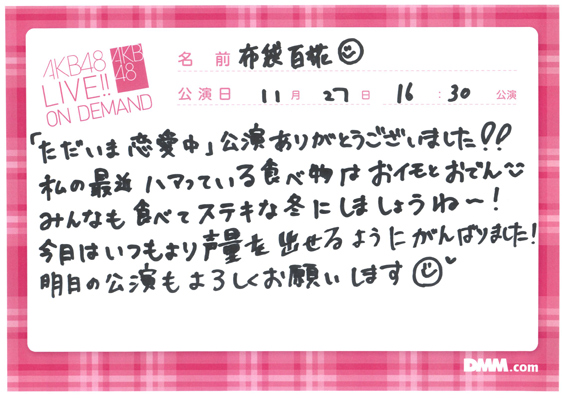 AKB48
LIVE!!
ON DEMAND
AKB
48
名 前 布袋百椛
公演日 11月 27日 16:30 公演
「ただいま恋愛中」公演ありがとうございました!!
私の最近ハマっている食べ物はおイモとおでん
みんなも食べてステキな冬にしましょうね〜!
今日はいつもより声量を出せるようにがんばりました!
明日の公演もよろしくお願いします
DMM.com